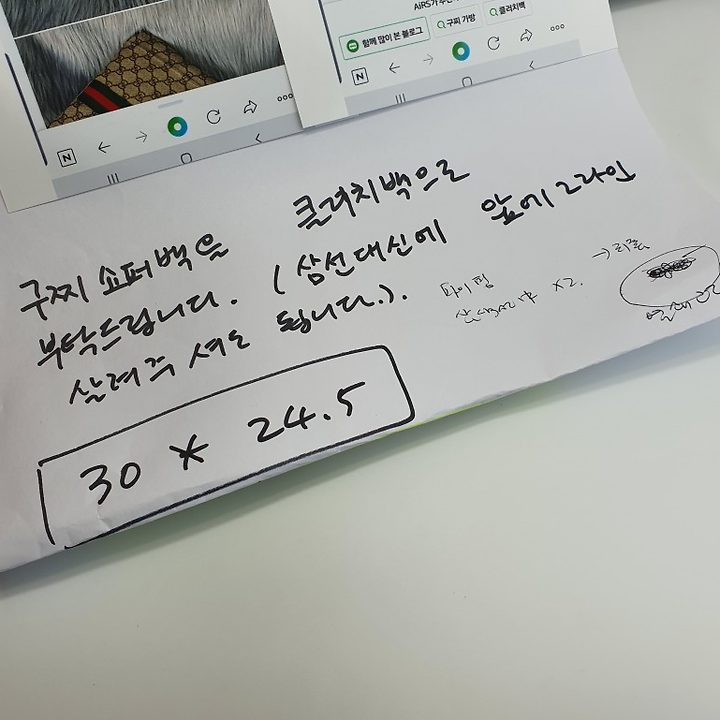 AiRS가
함께 많이 본 블로그
구찌 가방
클러치백
N
N
구찌 쇼퍼백을 클러치백으로
부탁드립니다. (삼선대신에 앞에 그라인
살려주셔도 됩니다.).
파이핑
x2.
30 * 24.5